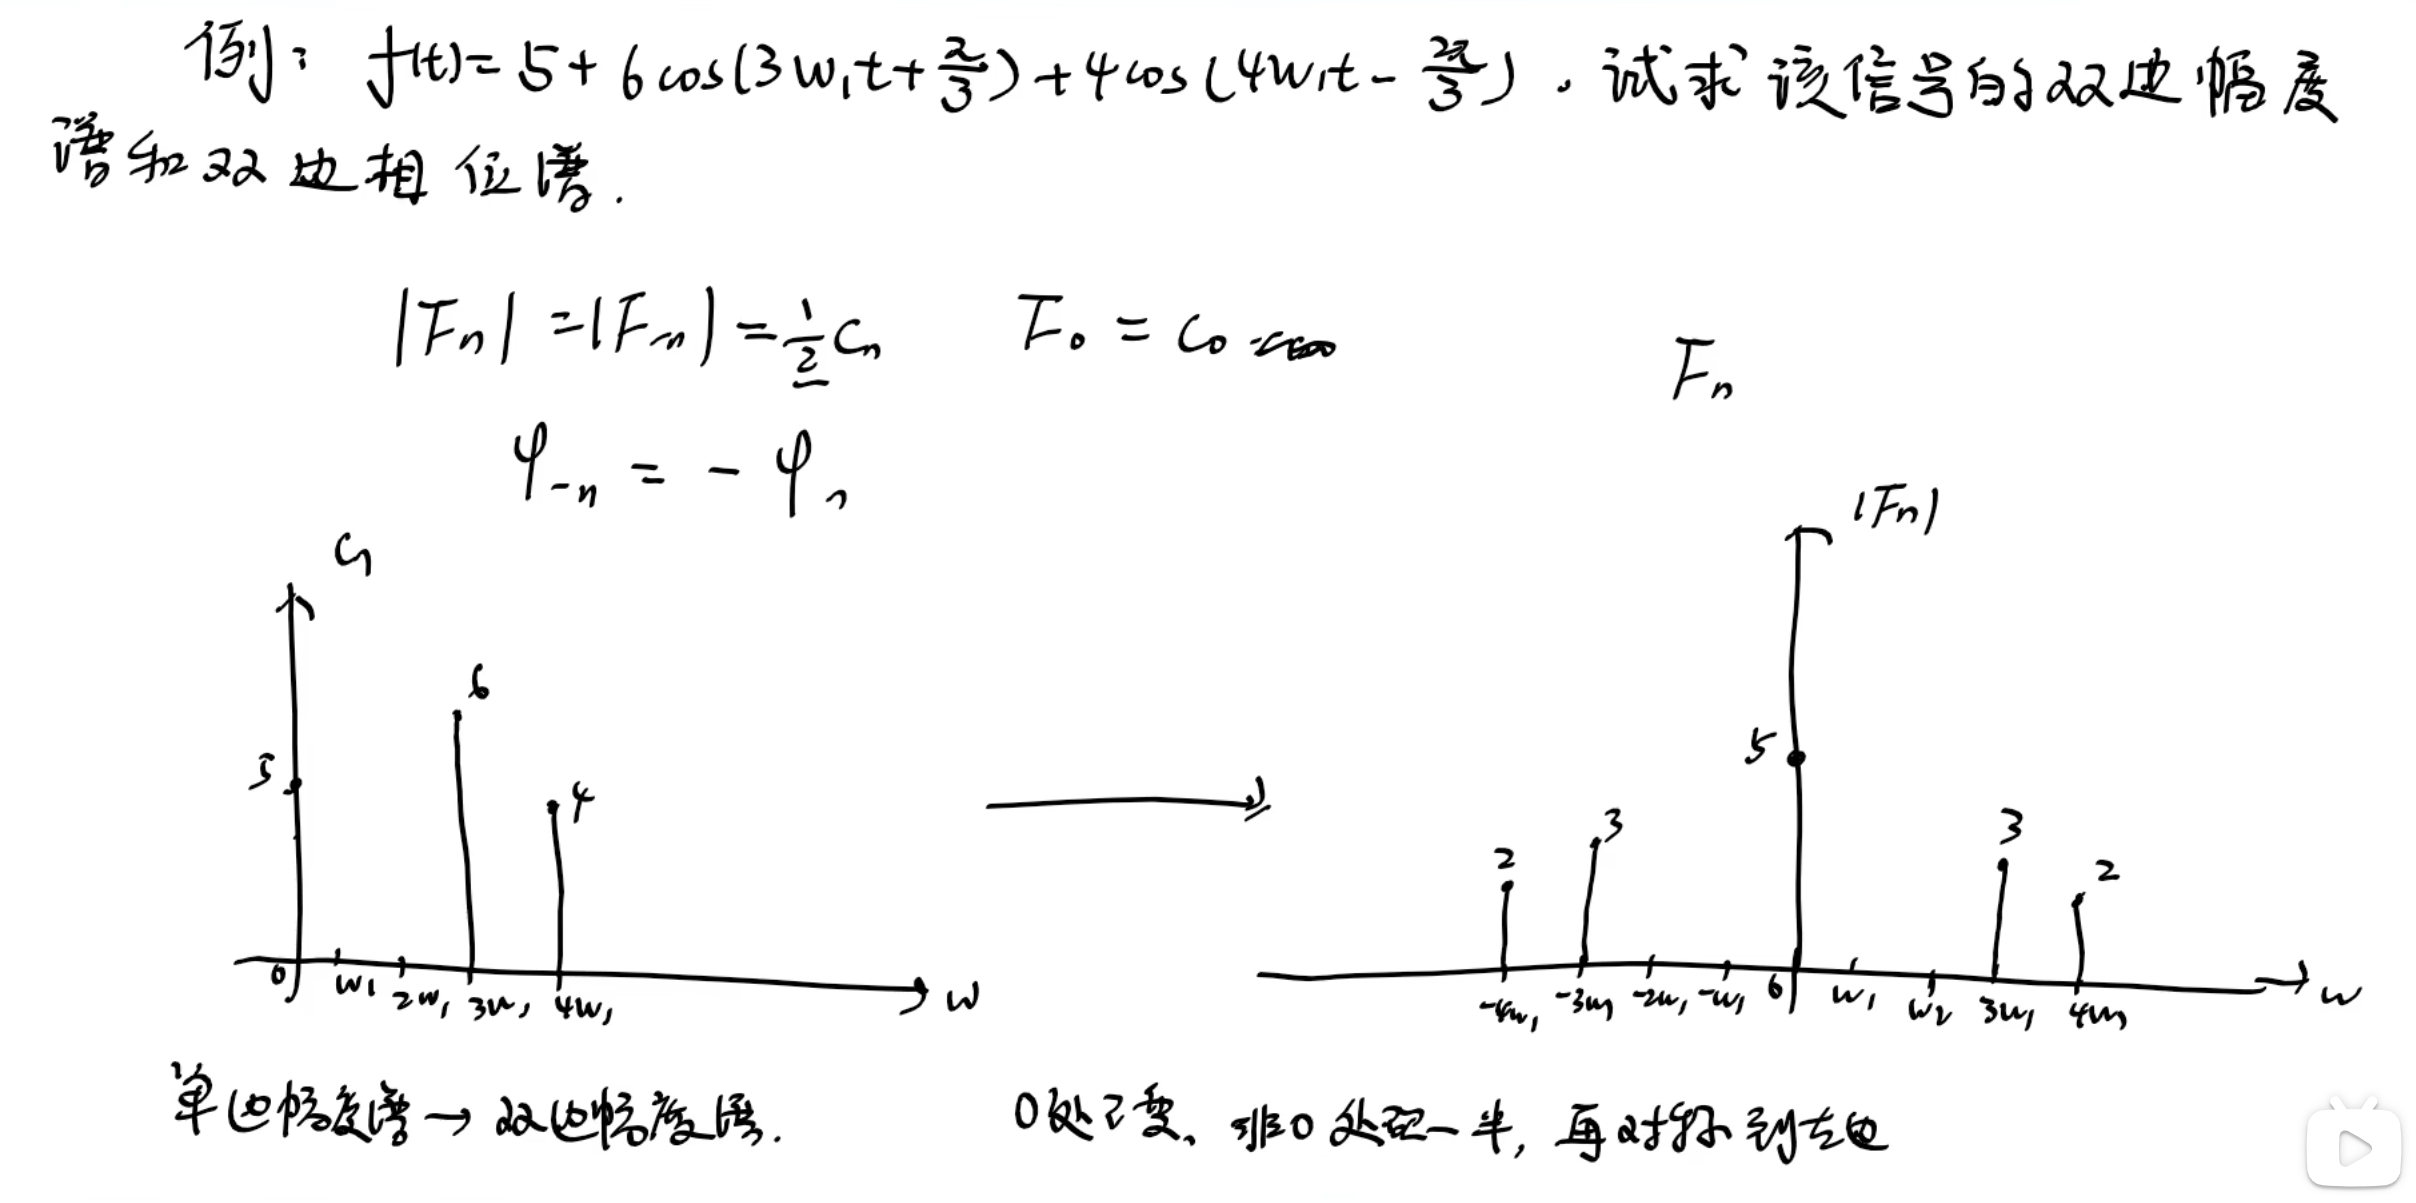 例: f(t)=5+6cos(3w₁t+π/3)+4cos(4w₁t-2π/3). 试求该信号的双边幅度
谱和双边相位谱.
|Fn|=|F-n|=1/2 Cn F₀=C₀
Fn
φ-n=-φn
Cn
|Fn|
6
5
4
0 w₁ 2w₁ 3w₁ 4w₁ w
5
2 3 3 2
-4w₁ -3w₁ -2w₁ -w₁ 0 w₁ w₂ 3w₁ 4w₁ w
单边幅度谱→双边幅度谱. 0处不变、非0处砍一半,再对称到左边